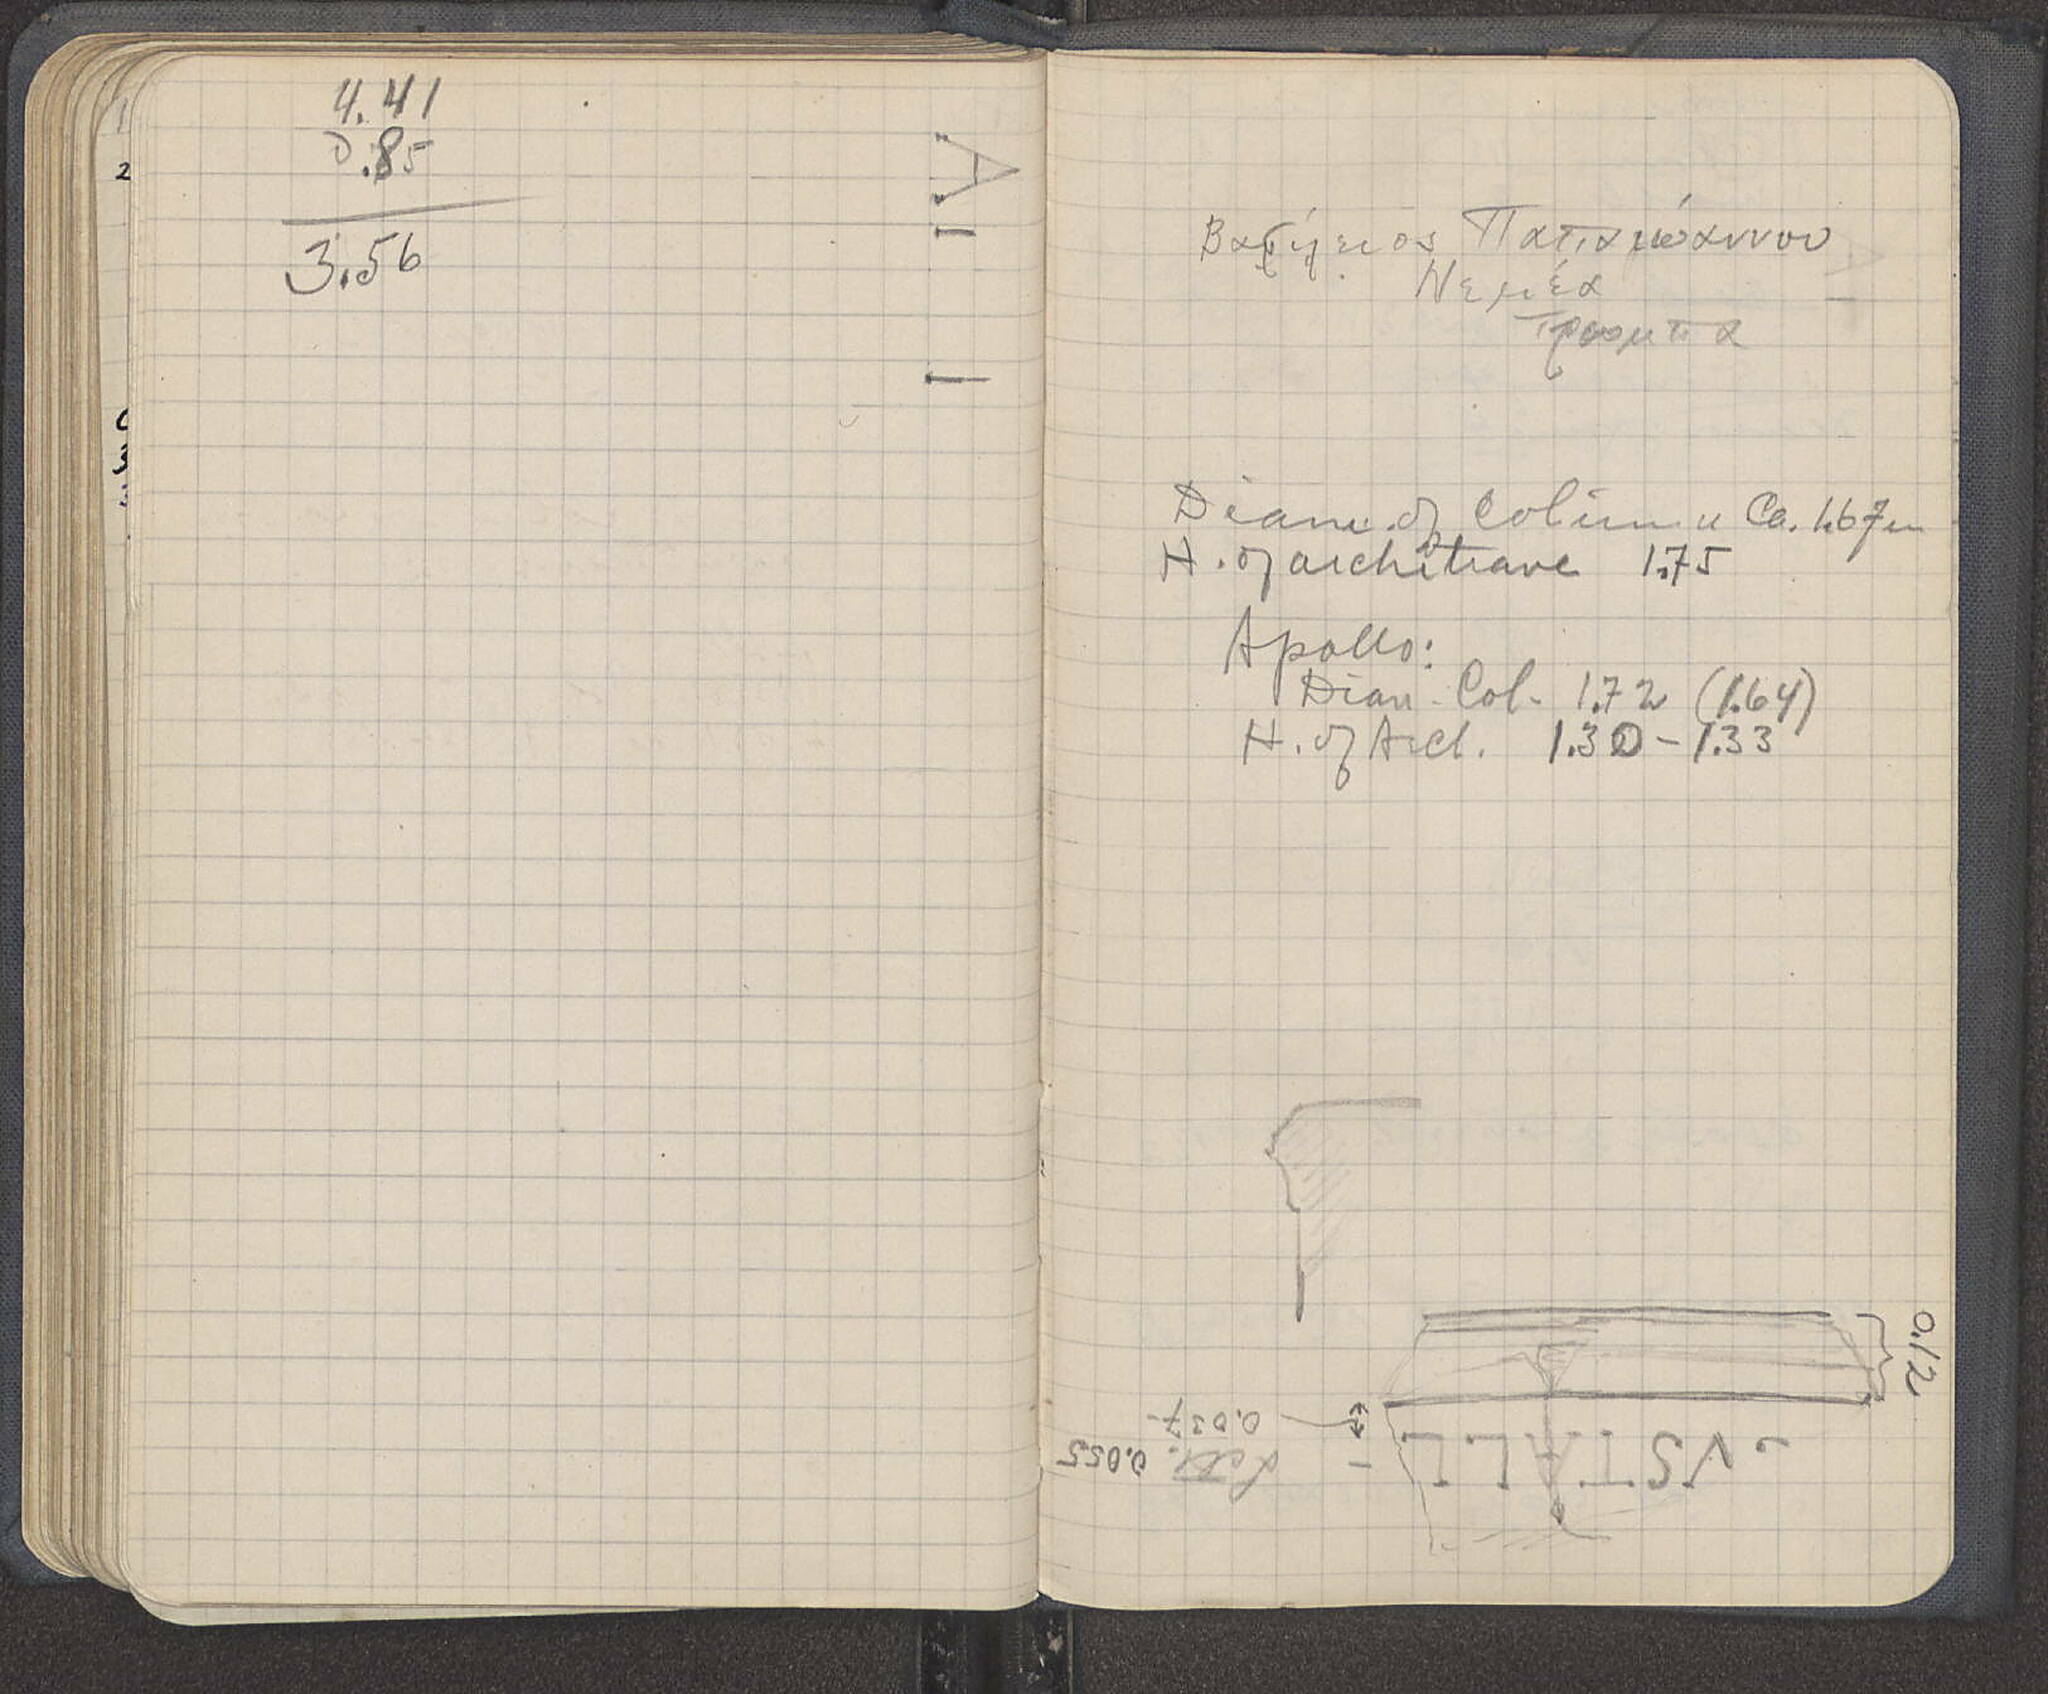 4.41
0.85
3.56
A
Βασίλειος Παπαιωάννου
Νεμέα
Diam. of Column Ca. 1.67m
H. of architrave 1.75
Apollo:
Diam. Col. 1.72 (1.64)
H. of Arch. 1.30-1.33
0.12
VSTALL
0.037
Lett. 0.055